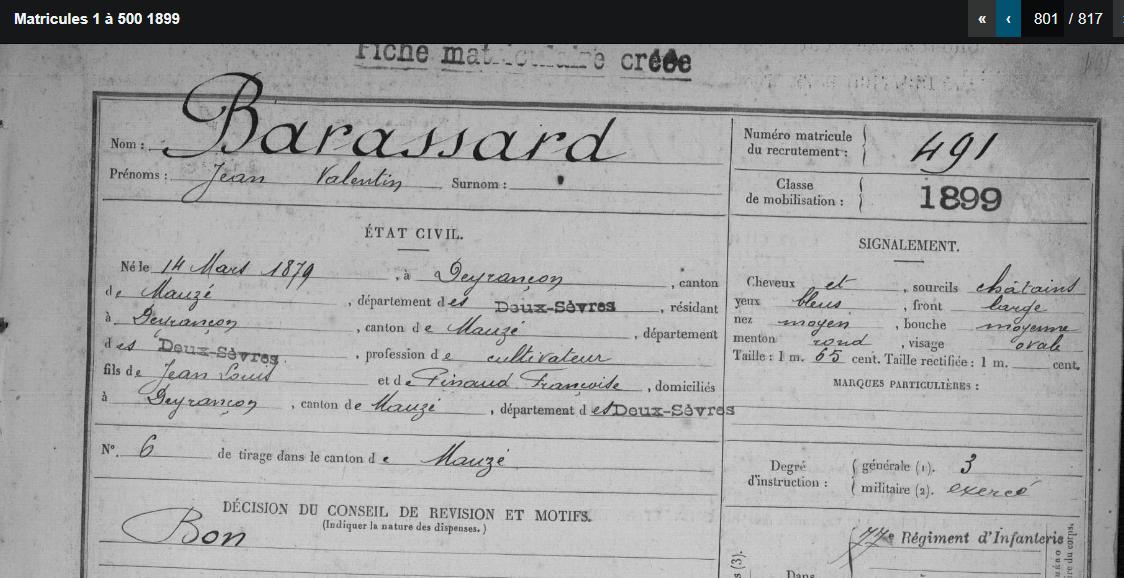 Matricules 1 à 500 1899
« ‹ 801 / 817
Fiche matriculaire créée
Nom : Barassard
Prénoms : Jean Valentin Surnom :
Numéro matricule
du recrutement : 491
Classe
de mobilisation : 1899
ÉTAT CIVIL.
Né le 14 Mars 1879, à Deyrançon, canton
de Mauzé, département des Deux-Sèvres, résidant
à Deyrançon, canton de Mauzé, département
des Deux-Sèvres, profession de cultivateur
fils de Jean Louis et de Pinaud Françoise, domiciliés
à Deyrançon, canton de Mauzé, département des Deux-Sèvres
N° 6 de tirage dans le canton de Mauzé
DÉCISION DU CONSEIL DE REVISION ET MOTIFS.
(Indiquer la nature des dispenses.)
Bon
SIGNALEMENT.
Cheveux et, sourcils châtains
yeux bleus, front large
nez moyen, bouche moyenne
menton rond, visage ovale
Taille : 1 m. 65 cent. Taille rectifiée : 1 m. cent.
MARQUES PARTICULIÈRES :
Degré
d'instruction :
générale (1). 3
militaire (2). exercé
77e Régiment d'Infanterie
Dans
(3).
re du corps.